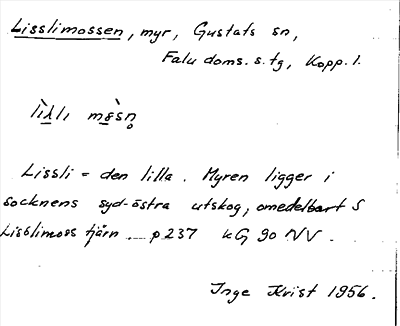 Lisslimossen, myr, Gustafs sn,
Falu doms. s. tg, Kopp. l.
lìlli mòsn̥
Lissli = den lilla. Myren ligger i
socknens syd-östra utskog, omedelbart S
Lisslimoss tjärn. p 237 kG 90 NV.
Inge Kvist 1956.